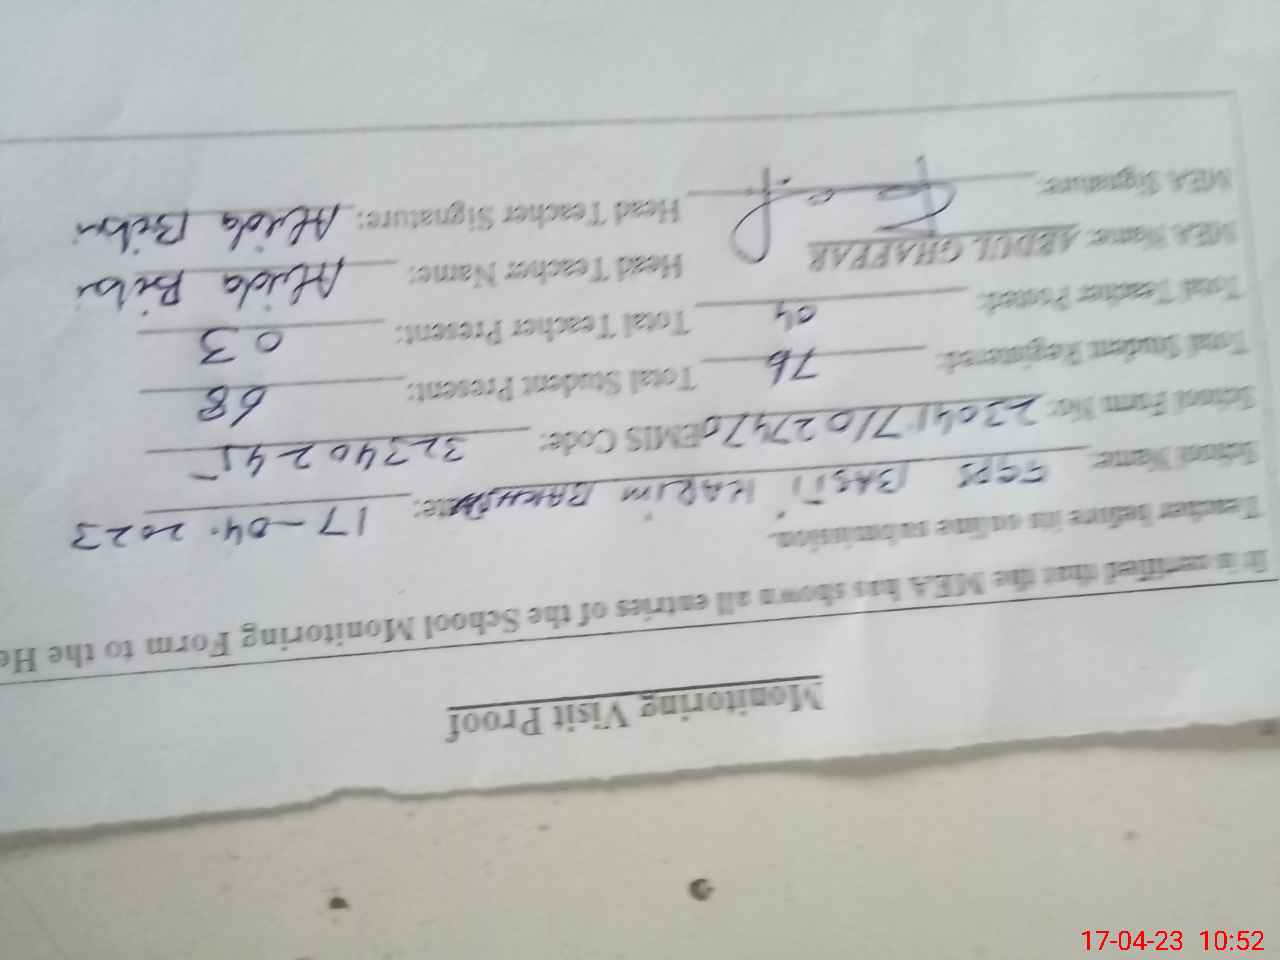 Monitoring Visit Proof
It is certified that the MEA has shown all entries of the School Monitoring Form to the He
Teacher before its online submission.
School Name: GGPS BASTI KARIM BAKHSH Date: 17-04-2023
School Form No: 2304171027470 EMIS Code: 32340245
Total Student Registered: 76 Total Student Present: 68
Total Teacher Posted: 04 Total Teacher Present: 03
MEA Name: ABDUL GHAFFAR Head Teacher Name: Bibi
MEA Signature: Head Teacher Signature: Bibi
17-04-23 10:52